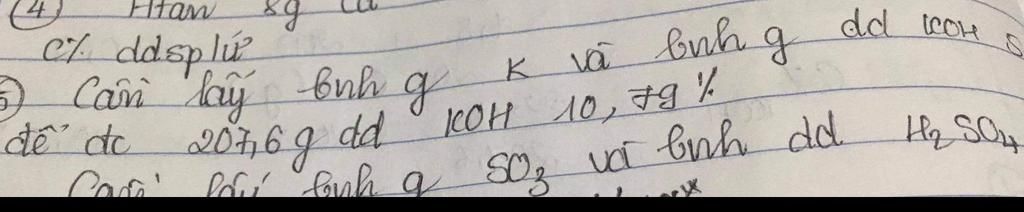 (4) Htan 8g Ca
C% ddsplư?
5) Cần lấy bnh g K và bnh g dd KOH 5
để đc 207,6 g dd KOH 10,79%
Cần lấy bnh g SO3 và bnh dd H2SO4